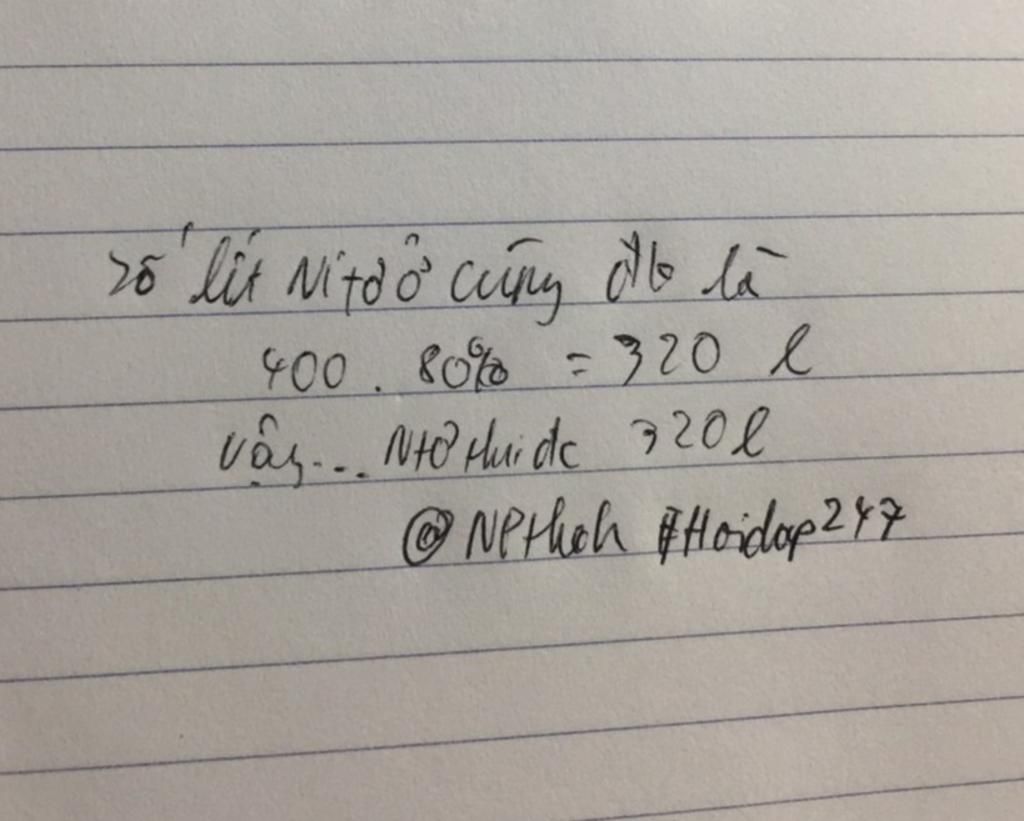 số lít Nitơ ở cùng đk là
400 . 80% = 320 l
Vậy... Nitơ thu đc 320l
#Hoidap247